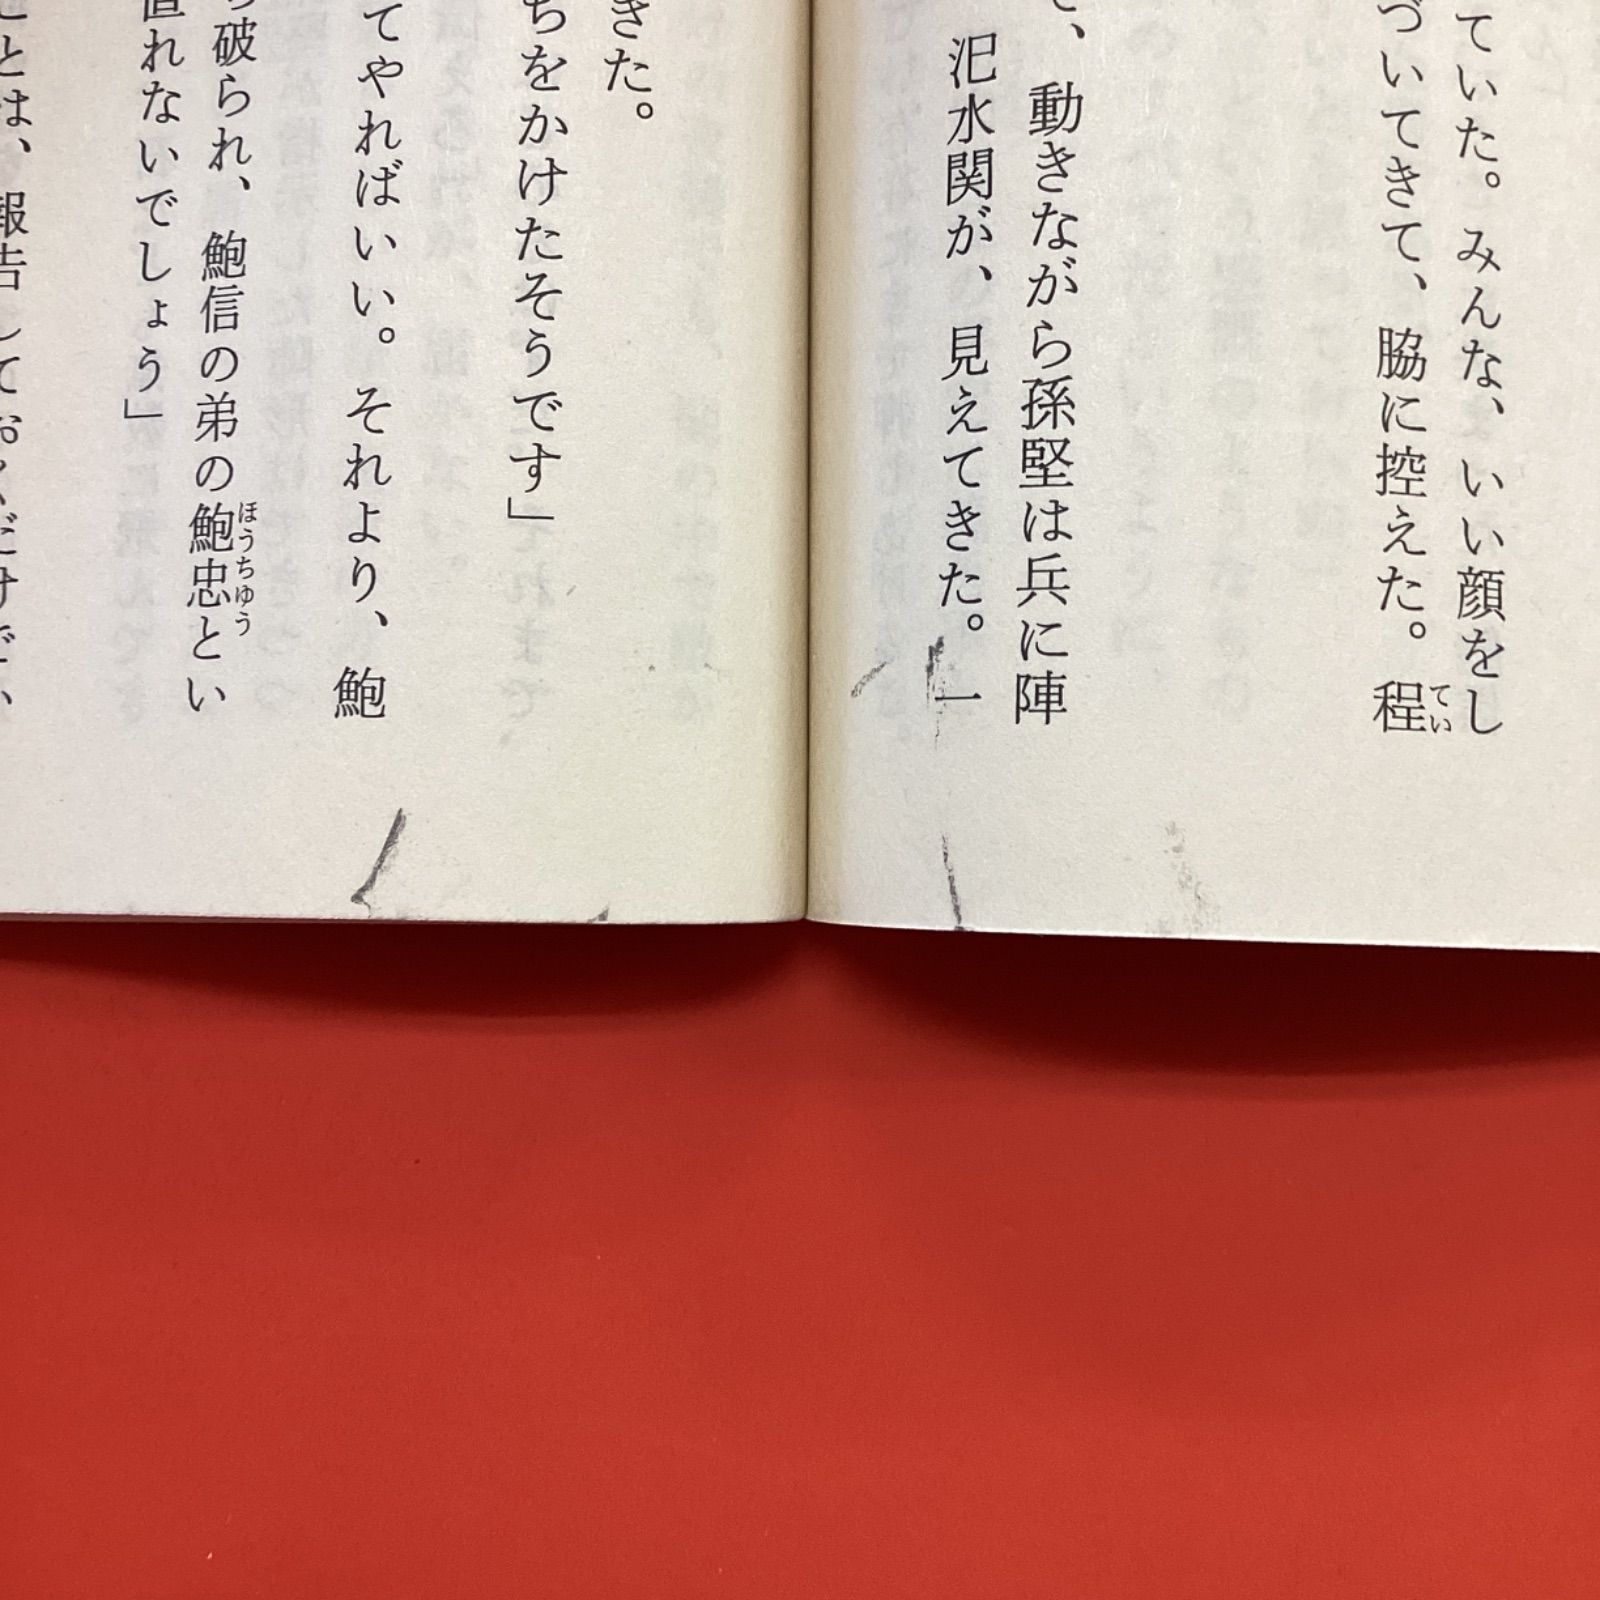 ていた。みんな、いい顔をし
づいてきて、脇に控えた。程
てい
動きながら孫堅は兵に陣
汜水関が、見えてきた。一
きた。
ちをかけたそうです」
てやればいい。それより、鮑
破られ、鮑信の弟の鮑忠とい
ほうちゆう
直れないでしょう」
ことは、報告しておくだけで、